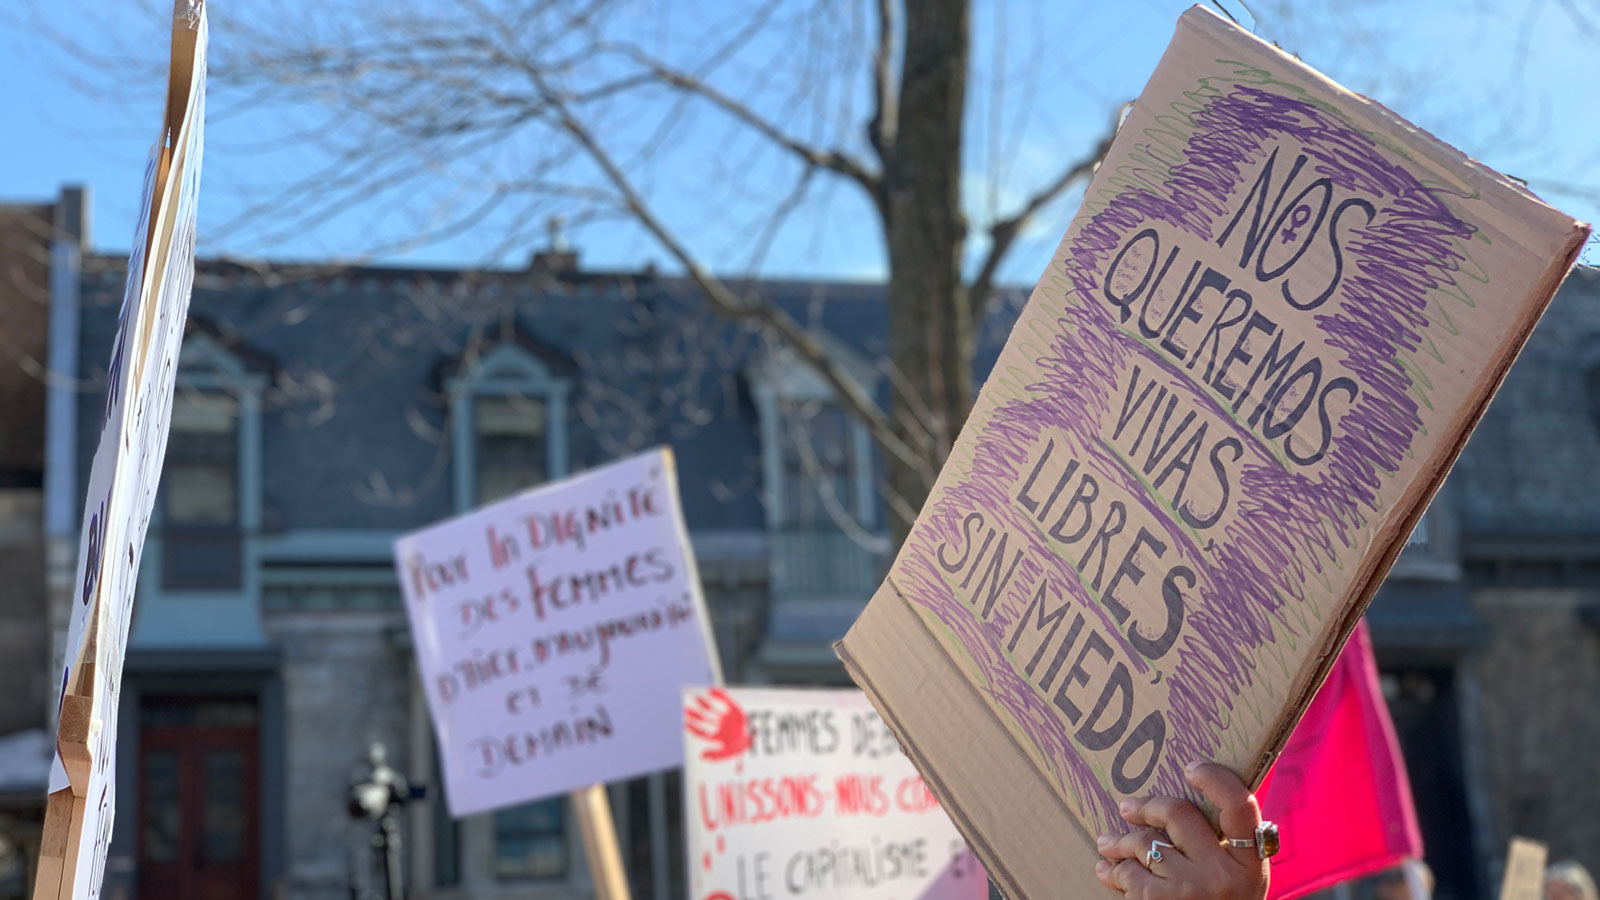 NOS
QUEREMOS
VIVAS,
LIBRES,
SIN MIEDO,
Pour la DIGNITÉ
DES FEMMES
D'HIER, D'AUJOURD'HUI
ET DE
DEMAIN
FEMMES
UNISSONS-NOUS
LE CAPITALISME